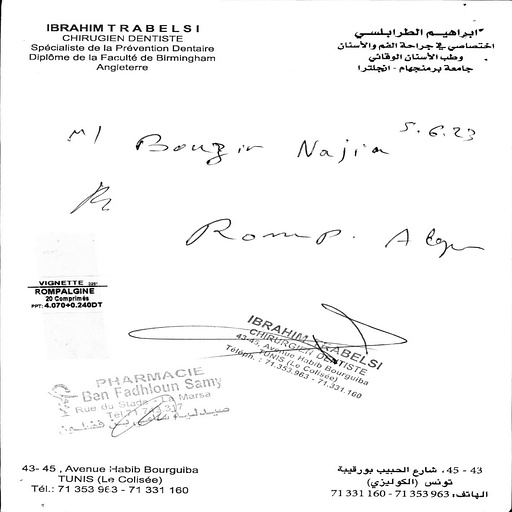 IBRAHIM TRABELSI
CHIRUGIEN DENTISTE
Spécialiste de la Prévention Dentaire
Diplôme de la Faculté de Birmingham
Angleterre
ابراهيم الطرابلسي
اختصاصي في جراحة الفم والأسنان
وطب الأسنان الوقائي
جامعة برمنجهام - انجلترا
5.6.23
Bouzir Najia
Romp.
VIGNETTE
ROMPALGINE
20 Comprimés
PPT: 4.070+0.240DT
IBRAHIM TRABELSI
CHIRURGIEN DENTISTE
43-45, Avenue Habib Bourguiba
TUNIS (Le Colisée)
Téléph. : 71.353.963 - 71.331.160
PHARMACIE
Ben Fadhloun Samy
Rue du Stade - La Marsa
43- 45 , Avenue Habib Bourguiba
TUNIS (Le Colisée)
Tél.: 71 353 963 - 71 331 160
43 - 45، شارع الحبيب بورقيبة
تونس (الكوليزي)
الهاتف: 963 353 71 - 160 331 71